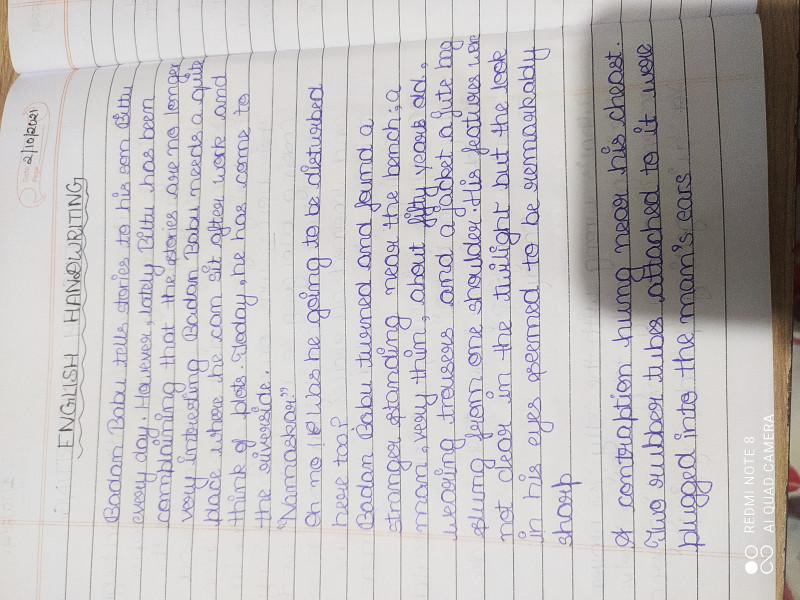 2/10/2021
ENGLISH HANDWRITING
Badan Babu tells stories to his son Biltu
every day. However, lately Biltu has been
complaining that the stories are no longer
very interesting Badan Babu needs a quite
place where he can sit after work and
think of plots. Today, he has come to
the riverside.
"Namaskar"
Oh no! Was he going to be disturbed
here too?
Badan Babu turned and found a
stranger standing near the bench; a
man, very thin, about fifty years old,
wearing trousers and a jacket a jute bag
slung from one shoulder. His features were
not clear in the twilight but the look
in his eyes seemed to be remarkably
sharp
A contraption hung near his cheast.
Two rubber tubes attached to it were
plugged into the man's ears
REDMI NOTE 8
AI QUAD CAMERA